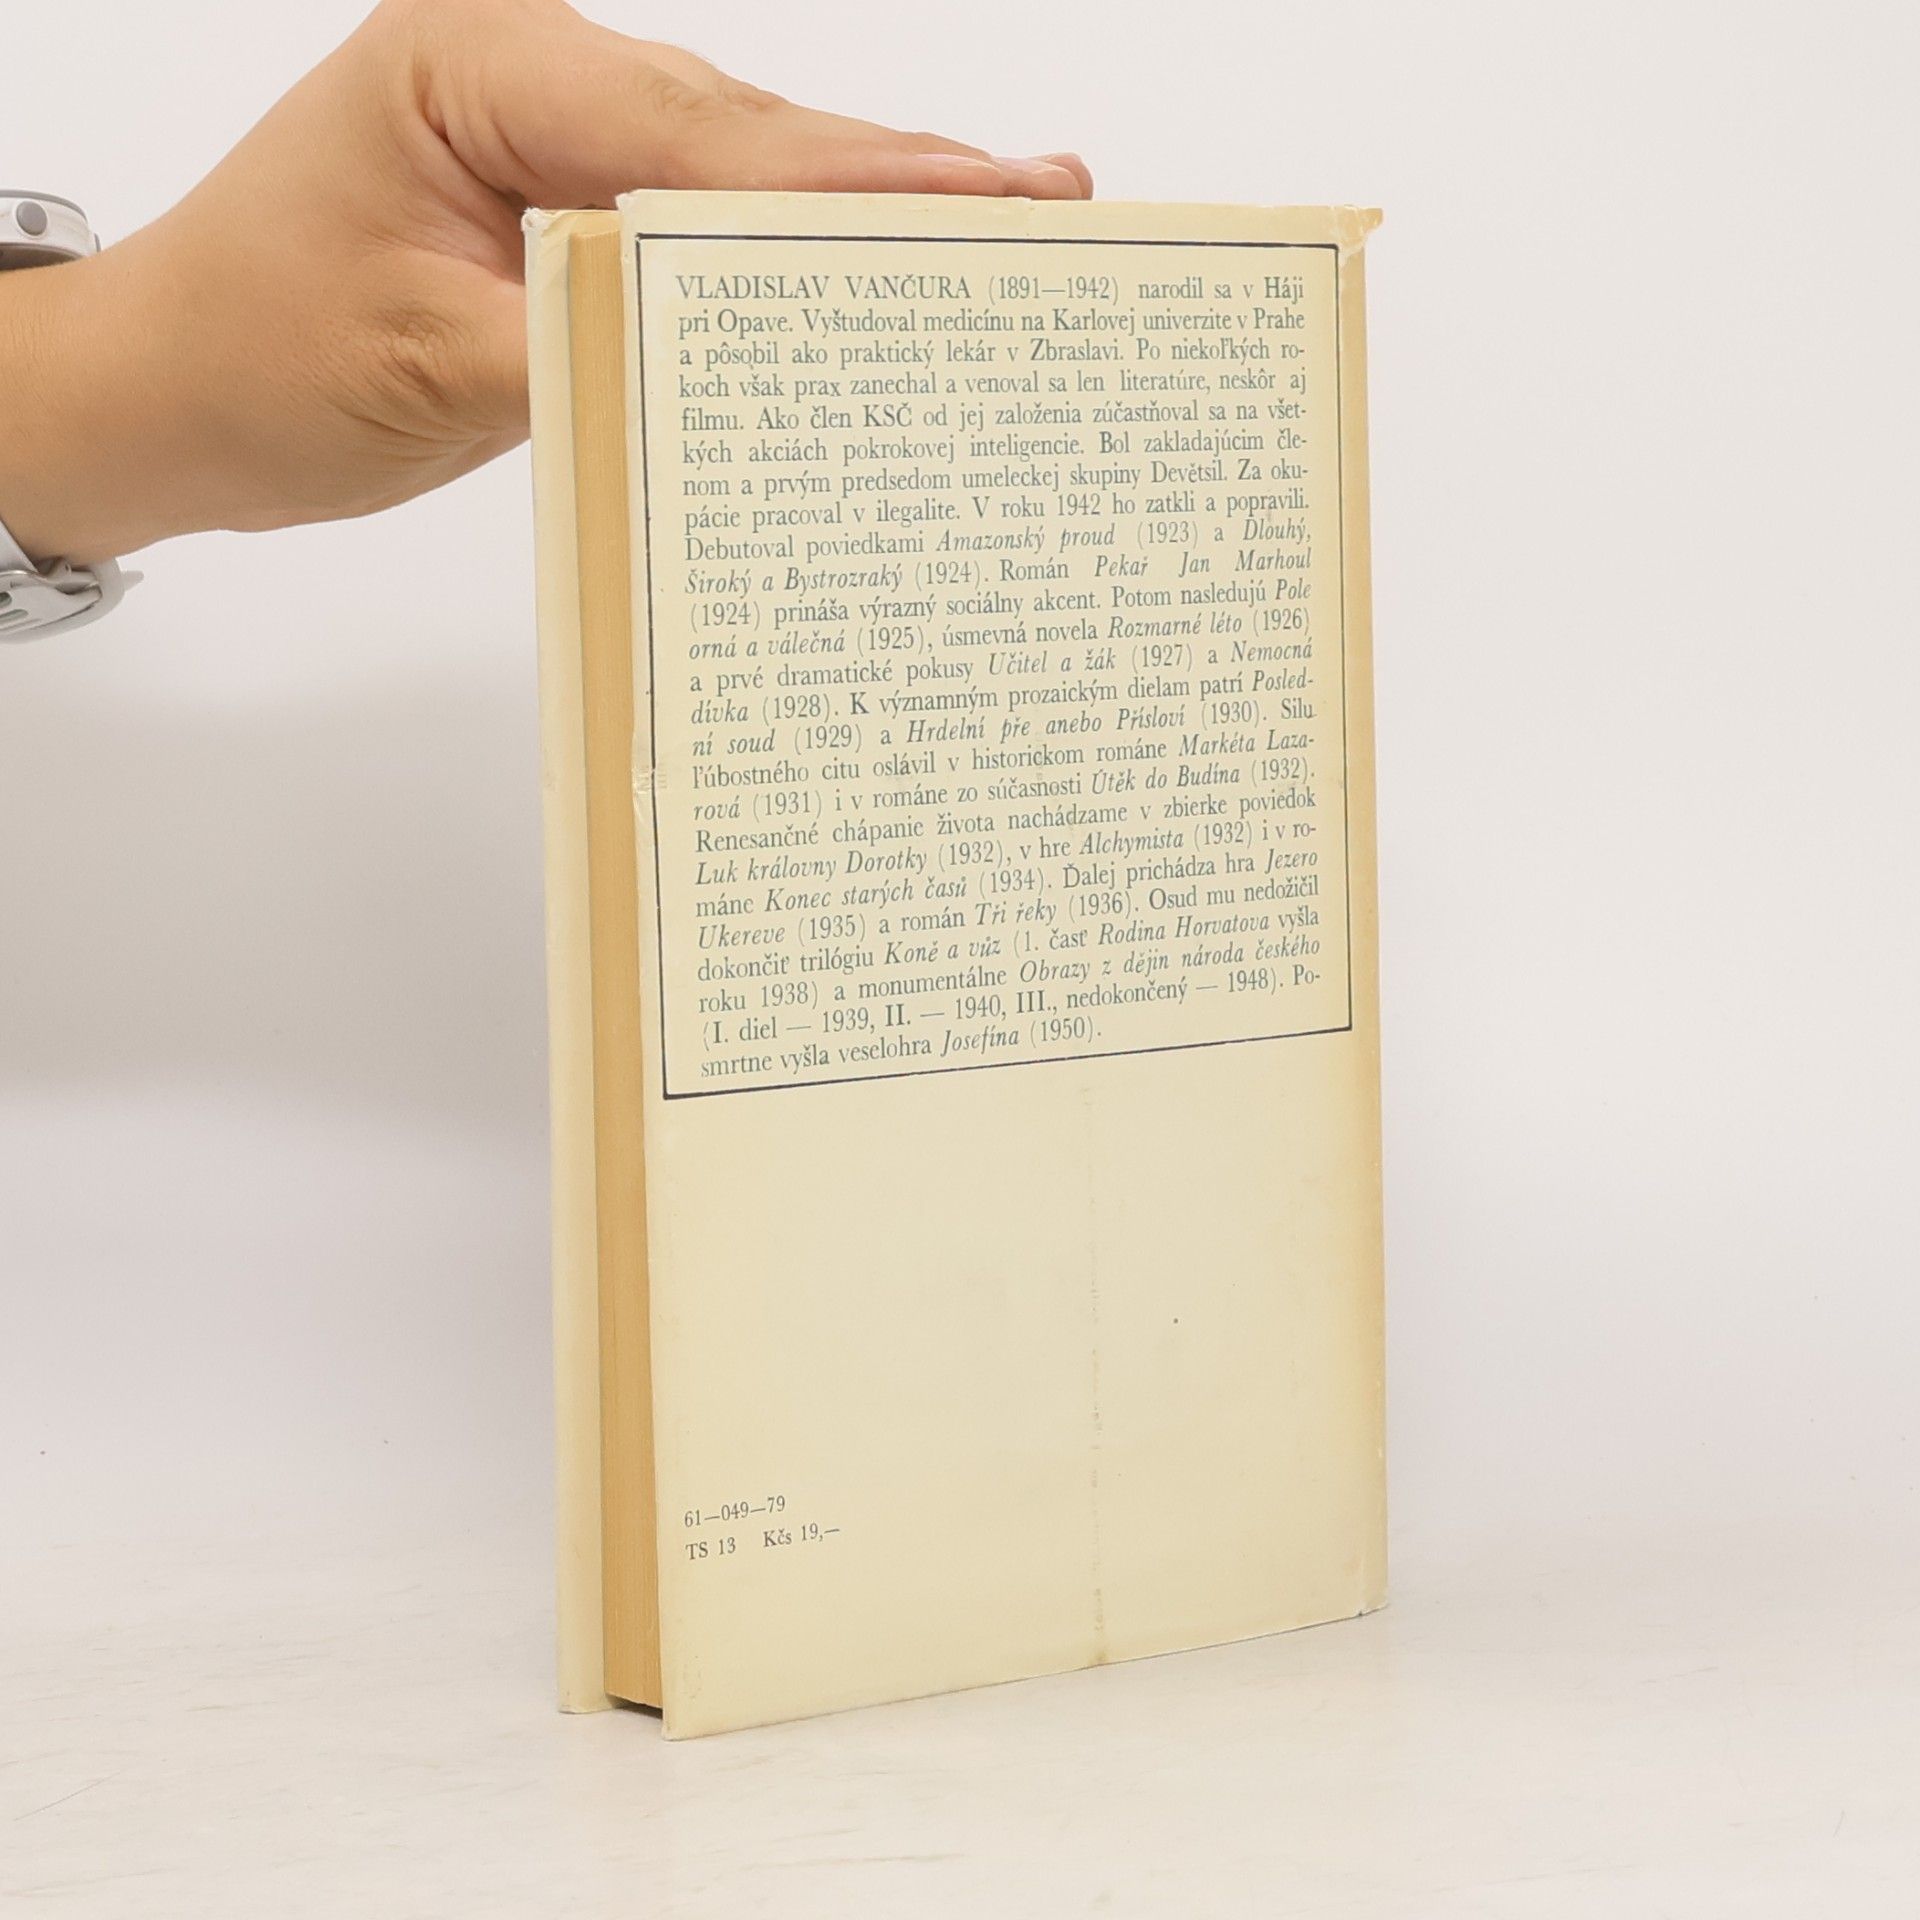 VLADISLAV VANČURA (1891—1942) narodil sa v Háji
pri Opave. Vyštudoval medicínu na Karlovej univerzite v Prahe
a pôsobil ako praktický lekár v Zbraslavi. Po niekoľkých ro-
koch však prax zanechal a venoval sa len literatúre, neskôr aj
filmu. Ako člen KSČ od jej založenia zúčastňoval sa na všet-
kých akciách pokrokovej inteligencie. Bol zakladajúcim čle-
nom a prvým predsedom umeleckej skupiny Devětsil. Za oku-
pácie pracoval v ilegalite. V roku 1942 ho zatkli a popravili.
Debutoval poviedkami Amazonský proud (1923) a Dlouhý,
Široký a Bystrozraký (1924). Román Pekař Jan Marhoul
(1924) prináša výrazný sociálny akcent. Potom nasledujú Pole
orná a válečná (1925), úsmevná novela Rozmarné léto (1926)
a prvé dramatické pokusy Učitel a žák (1927) a Nemocná
dívka (1928). K významným prozaickým dielam patrí Posled-
ní soud (1929) a Hrdelní pře anebo Přísloví (1930). Silu
ľúbostného citu oslávil v historickom románe Markéta Laza-
rová (1931) i v románe zo súčasnosti Útěk do Budína (1932).
Renesančné chápanie života nachádzame v zbierke poviedok
Luk královny Dorotky (1932), v hre Alchymista (1932) i v ro-
máne Konec starých časů (1934). Ďalej prichádza hra Jezero
Ukereve (1935) a román Tři řeky (1936). Osud mu nedožičil
dokončiť trilógiu Koně a vůz (1. časť Rodina Horvatova vyšla
roku 1938) a monumentálne Obrazy z dějin národa českého
(I. diel — 1939, II. — 1940, III., nedokončený — 1948). Po-
smrtne vyšla veselohra Josefína (1950).
61—049—79
TS 13 Kčs 19,—